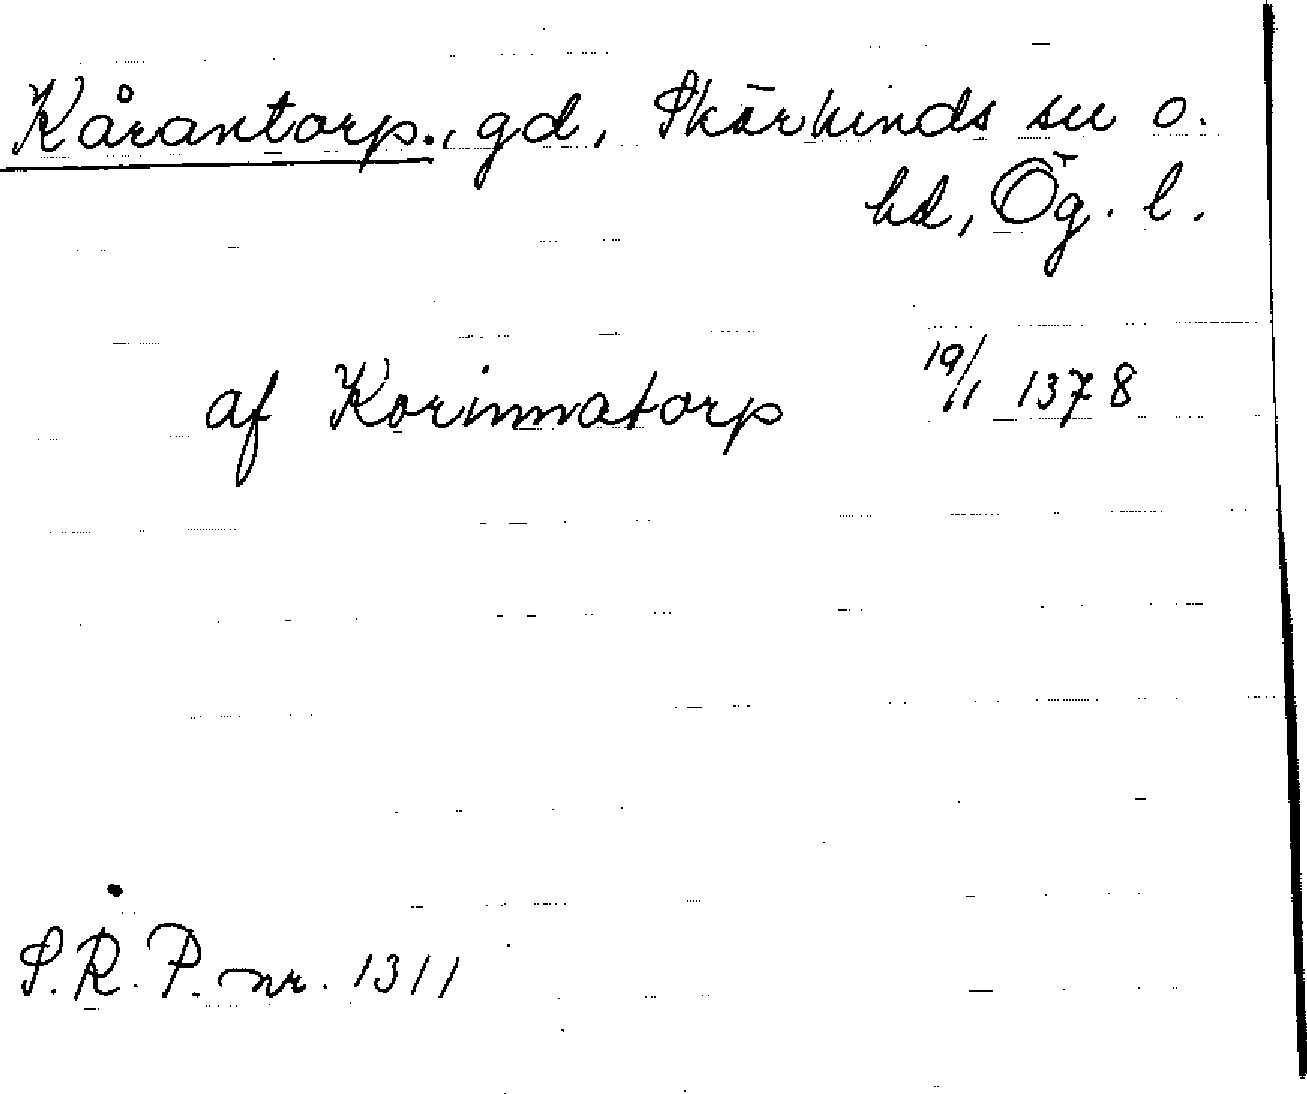 Kårantorp., gd, Skärkinds sn o.
hd, Ög. l.
af Korinnatorp 19/1 1378
S.R.P. nr. 1311